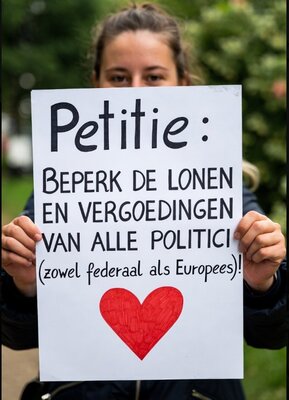 Petitie:
BEPERK DE LONEN
EN VERGOEDINGEN
VAN ALLE POLITICI
(zowel federaal als Europees)!